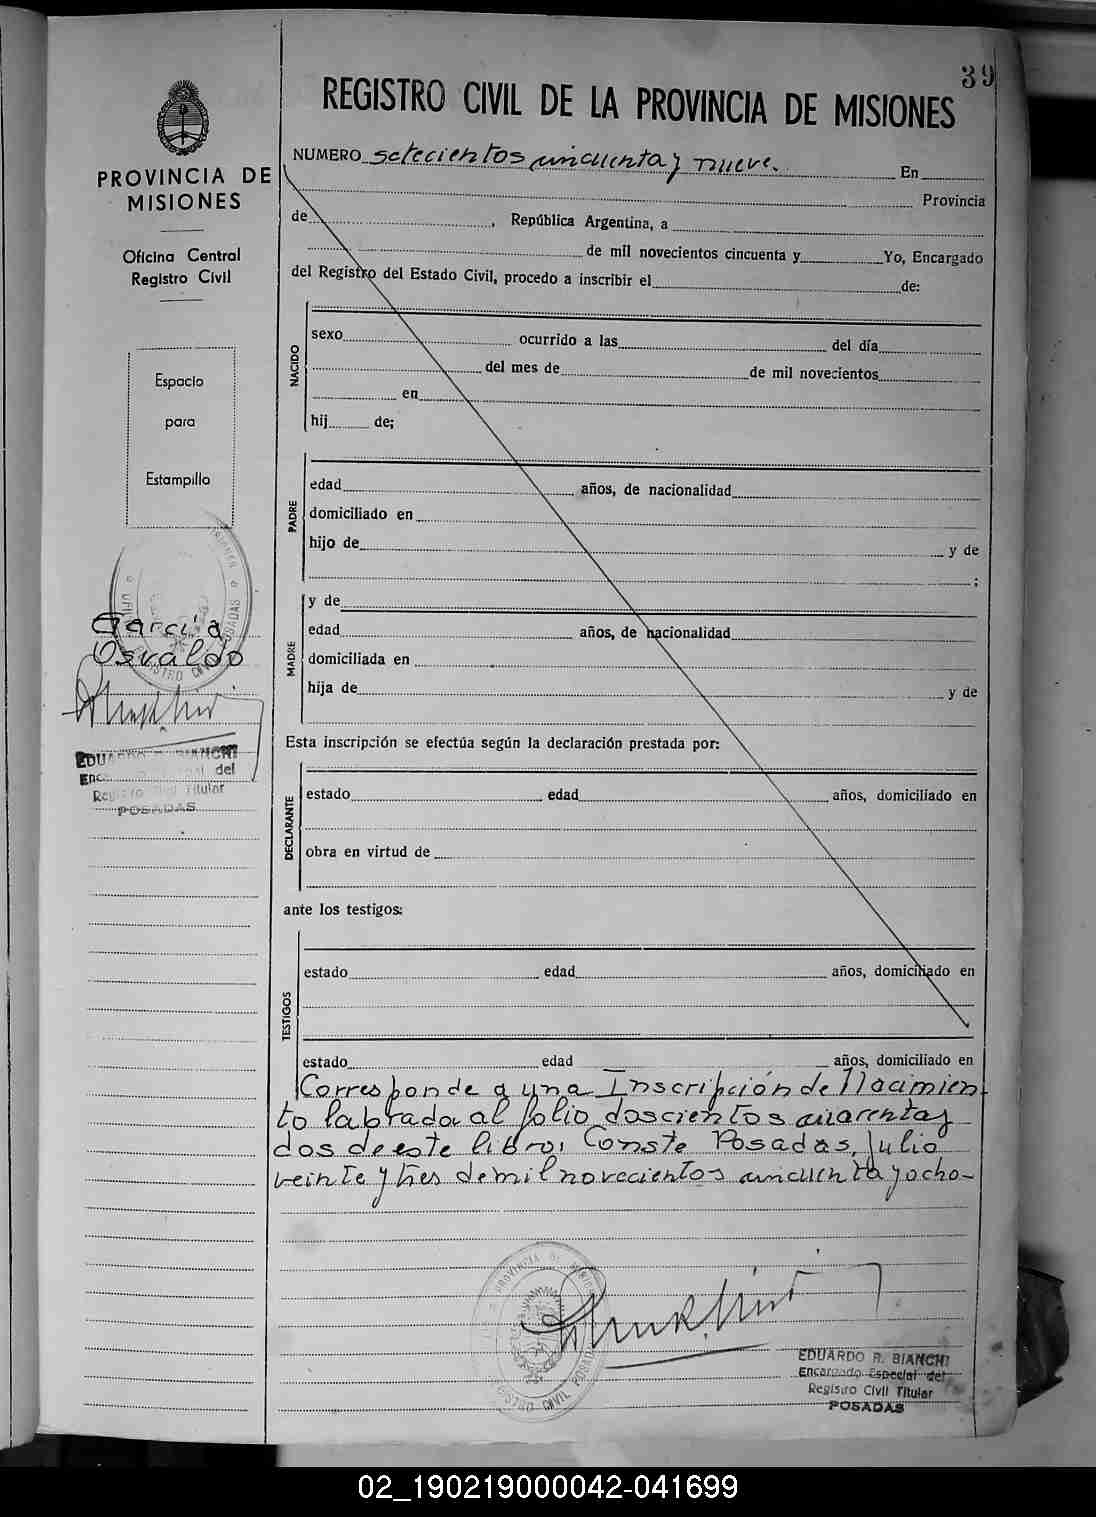 39
REGISTRO CIVIL DE LA PROVINCIA DE MISIONES
PROVINCIA DE
MISIONES
Oficina Central
Registro Civil
Espacio
para
Estampilla
Garcia
Osvaldo
EDUARDO R. BIANCHI
del
Registro Civil Titular
POSADAS
NUMERO setecientos cincuenta y nueve. En
Provincia
de , República Argentina, a
de mil novecientos cincuenta y Yo, Encargado
del Registro del Estado Civil, procedo a inscribir el de:
NACIDO
sexo ocurrido a las del día
del mes de de mil novecientos
en
hij de;
PADRE
edad años, de nacionalidad
domiciliado en
hijo de y de
;
MADRE
y de
edad años, de nacionalidad
domiciliada en
hija de y de
Esta inscripción se efectúa según la declaración prestada por:
DECLARANTE
estado edad años, domiciliado en
obra en virtud de
ante los testigos:
TESTIGOS
estado edad años, domiciliado en
estado edad años, domiciliado en
Corresponde a una Inscripción de Nacimien-
to labrada al folio doscientos cuarenta y
dos de este libro, Conste Posadas, Julio
veinte y tres de mil novecientos cincuenta y ocho-
EDUARDO R. BIANCHI
Encargado Especial del
Registro Civil Titular
POSADAS
02_190219000042-041699